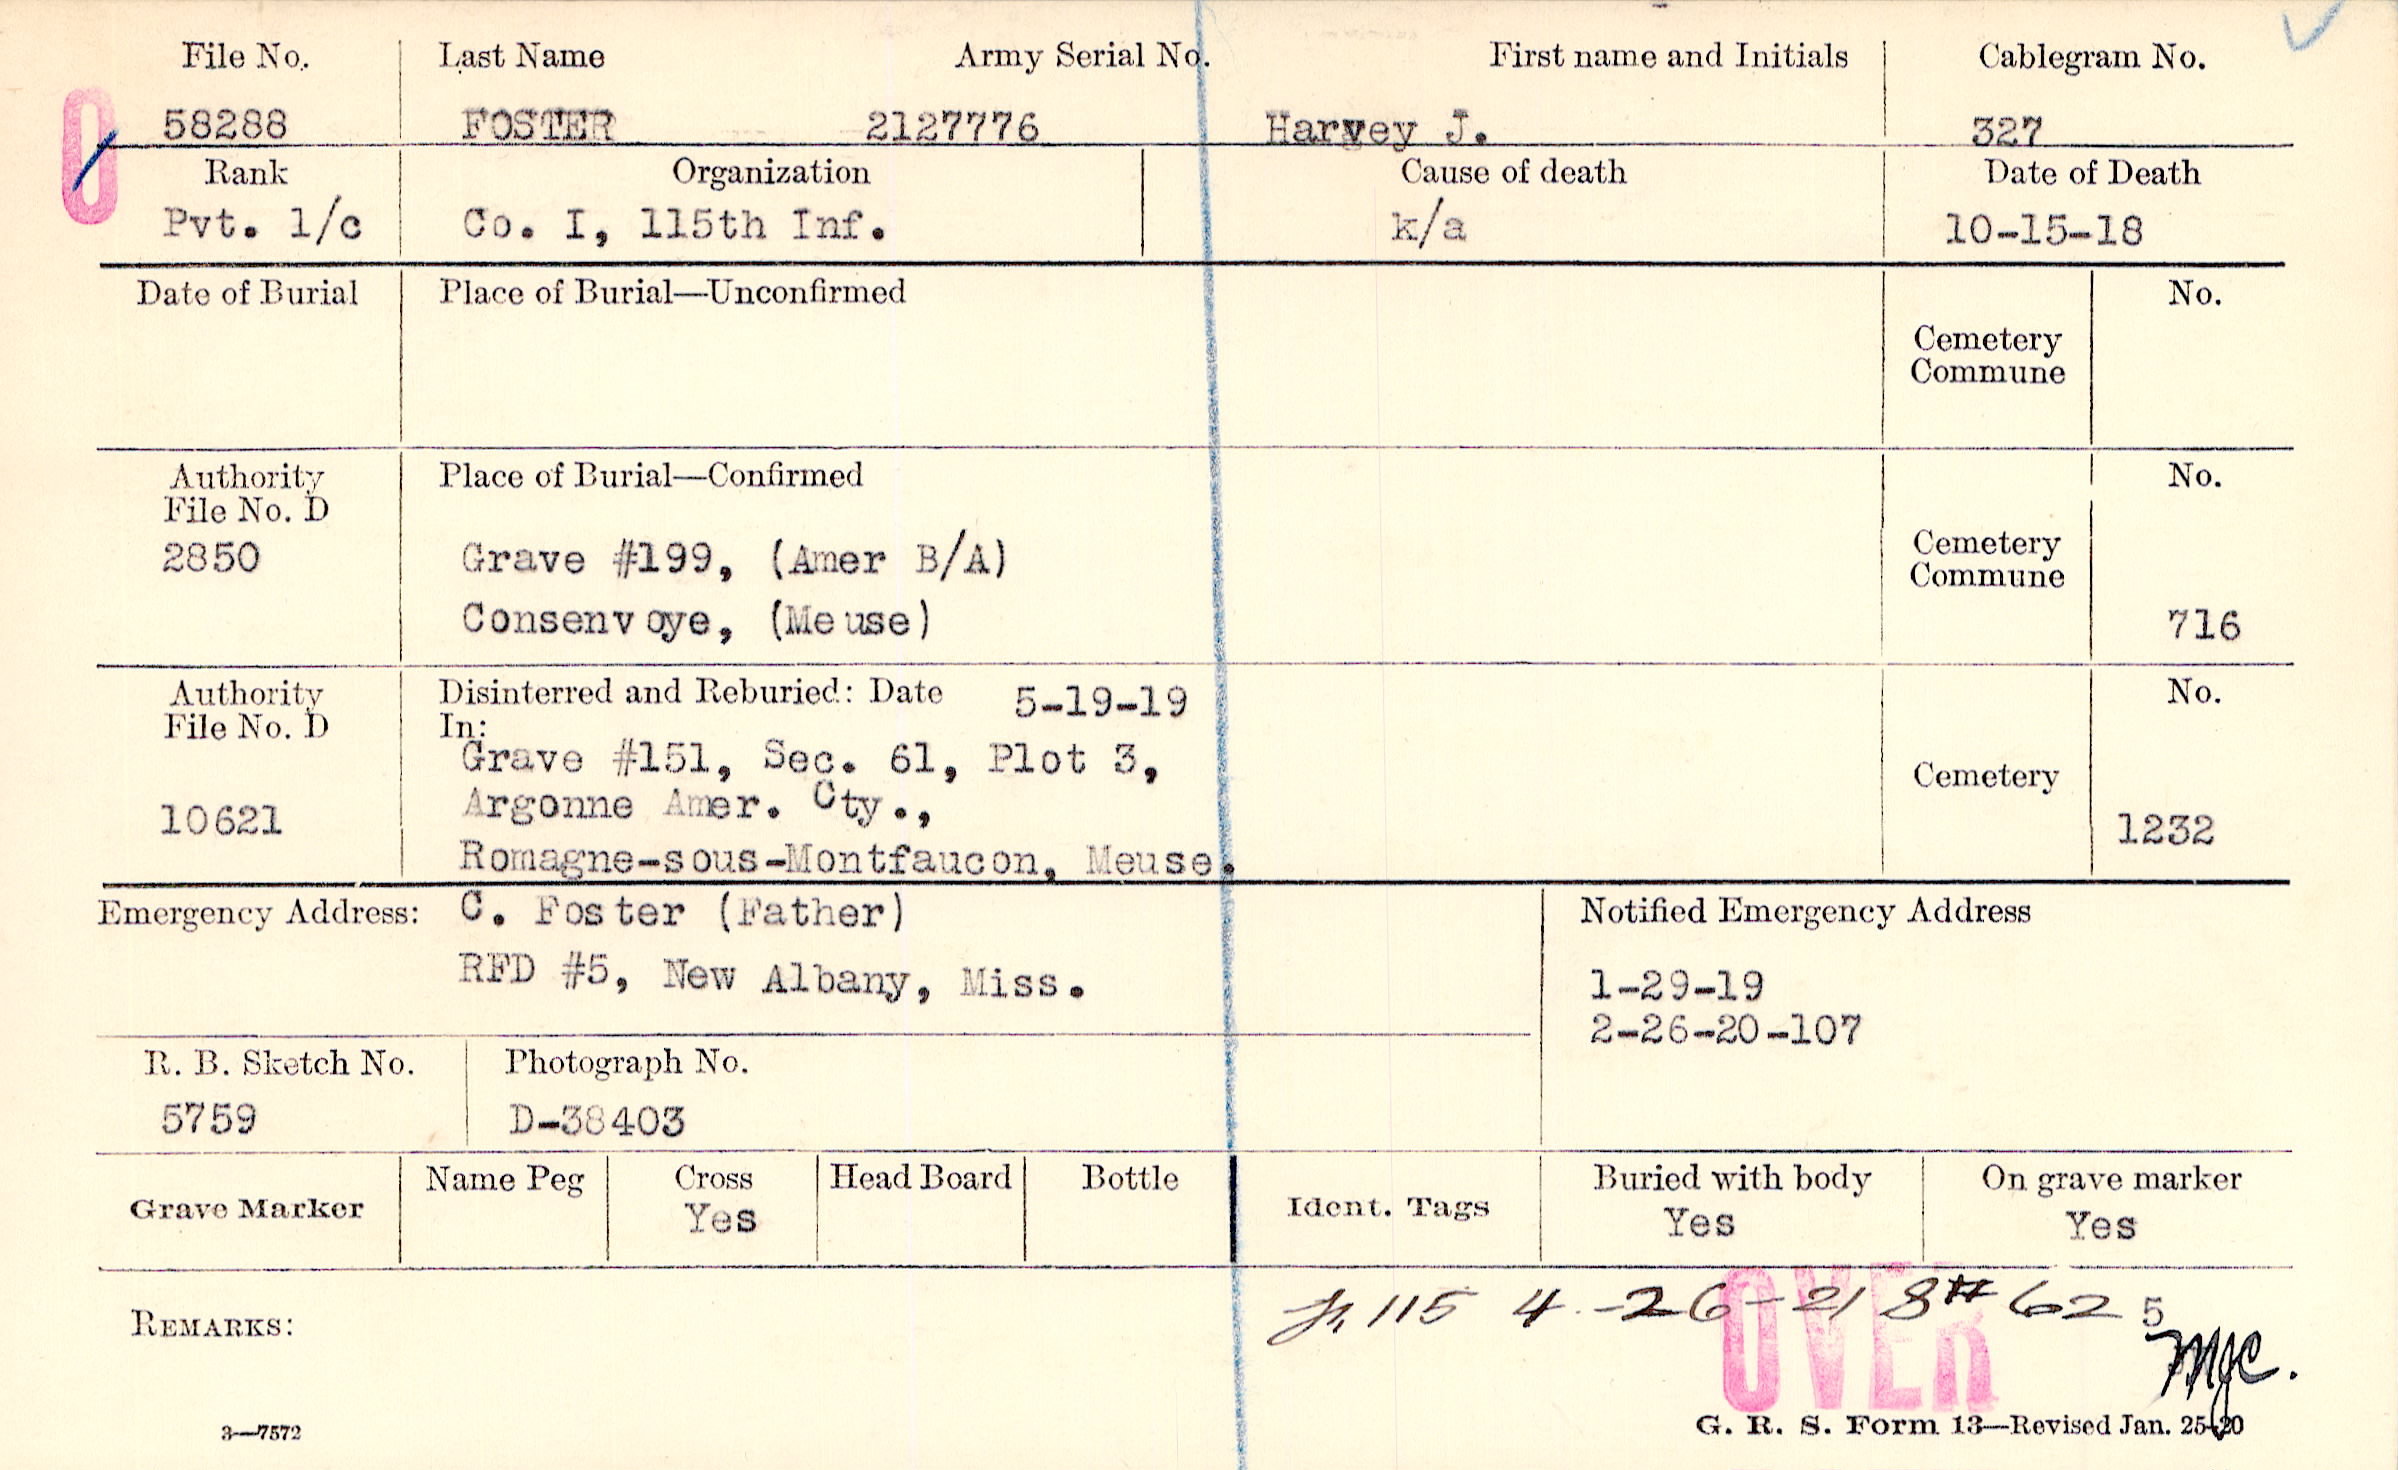 File No. Last Name Army Serial No. First name and Initials Cablegram No.
58288 FOSTER 2127776 Harvey J. 327
Rank Organization Cause of death Date of Death
Pvt. 1/c Co. I, 115th Inf. k/a 10-15-18
Date of Burial Place of Burial—Unconfirmed No.
Cemetery
Commune
Authority Place of Burial—Confirmed No.
File No. D
2850 Grave #199, (Amer B/A) Cemetery
Commune
Consenvoye, (Meuse) 716
Authority Disinterred and Reburied: Date 5-19-19 No.
File No. D In:
Grave #151, Sec. 61, Plot 3,
Cemetery
10621 Argonne Amer. Cty., 1232
Romagne-sous-Montfaucon, Meuse.
Emergency Address: C. Foster (Father) Notified Emergency Address
RFD #5, New Albany, Miss. 1-29-19
2-26-20-107
R. B. Sketch No. Photograph No.
5759 D-38403
Grave Marker Name Peg Cross Head Board Bottle Ident. Tags Buried with body On grave marker
Yes Yes Yes
115 4-26-21 8# 62 5
REMARKS: OVER
MJC.
3—7572 G. R. S. Form 13—Revised Jan. 25-20